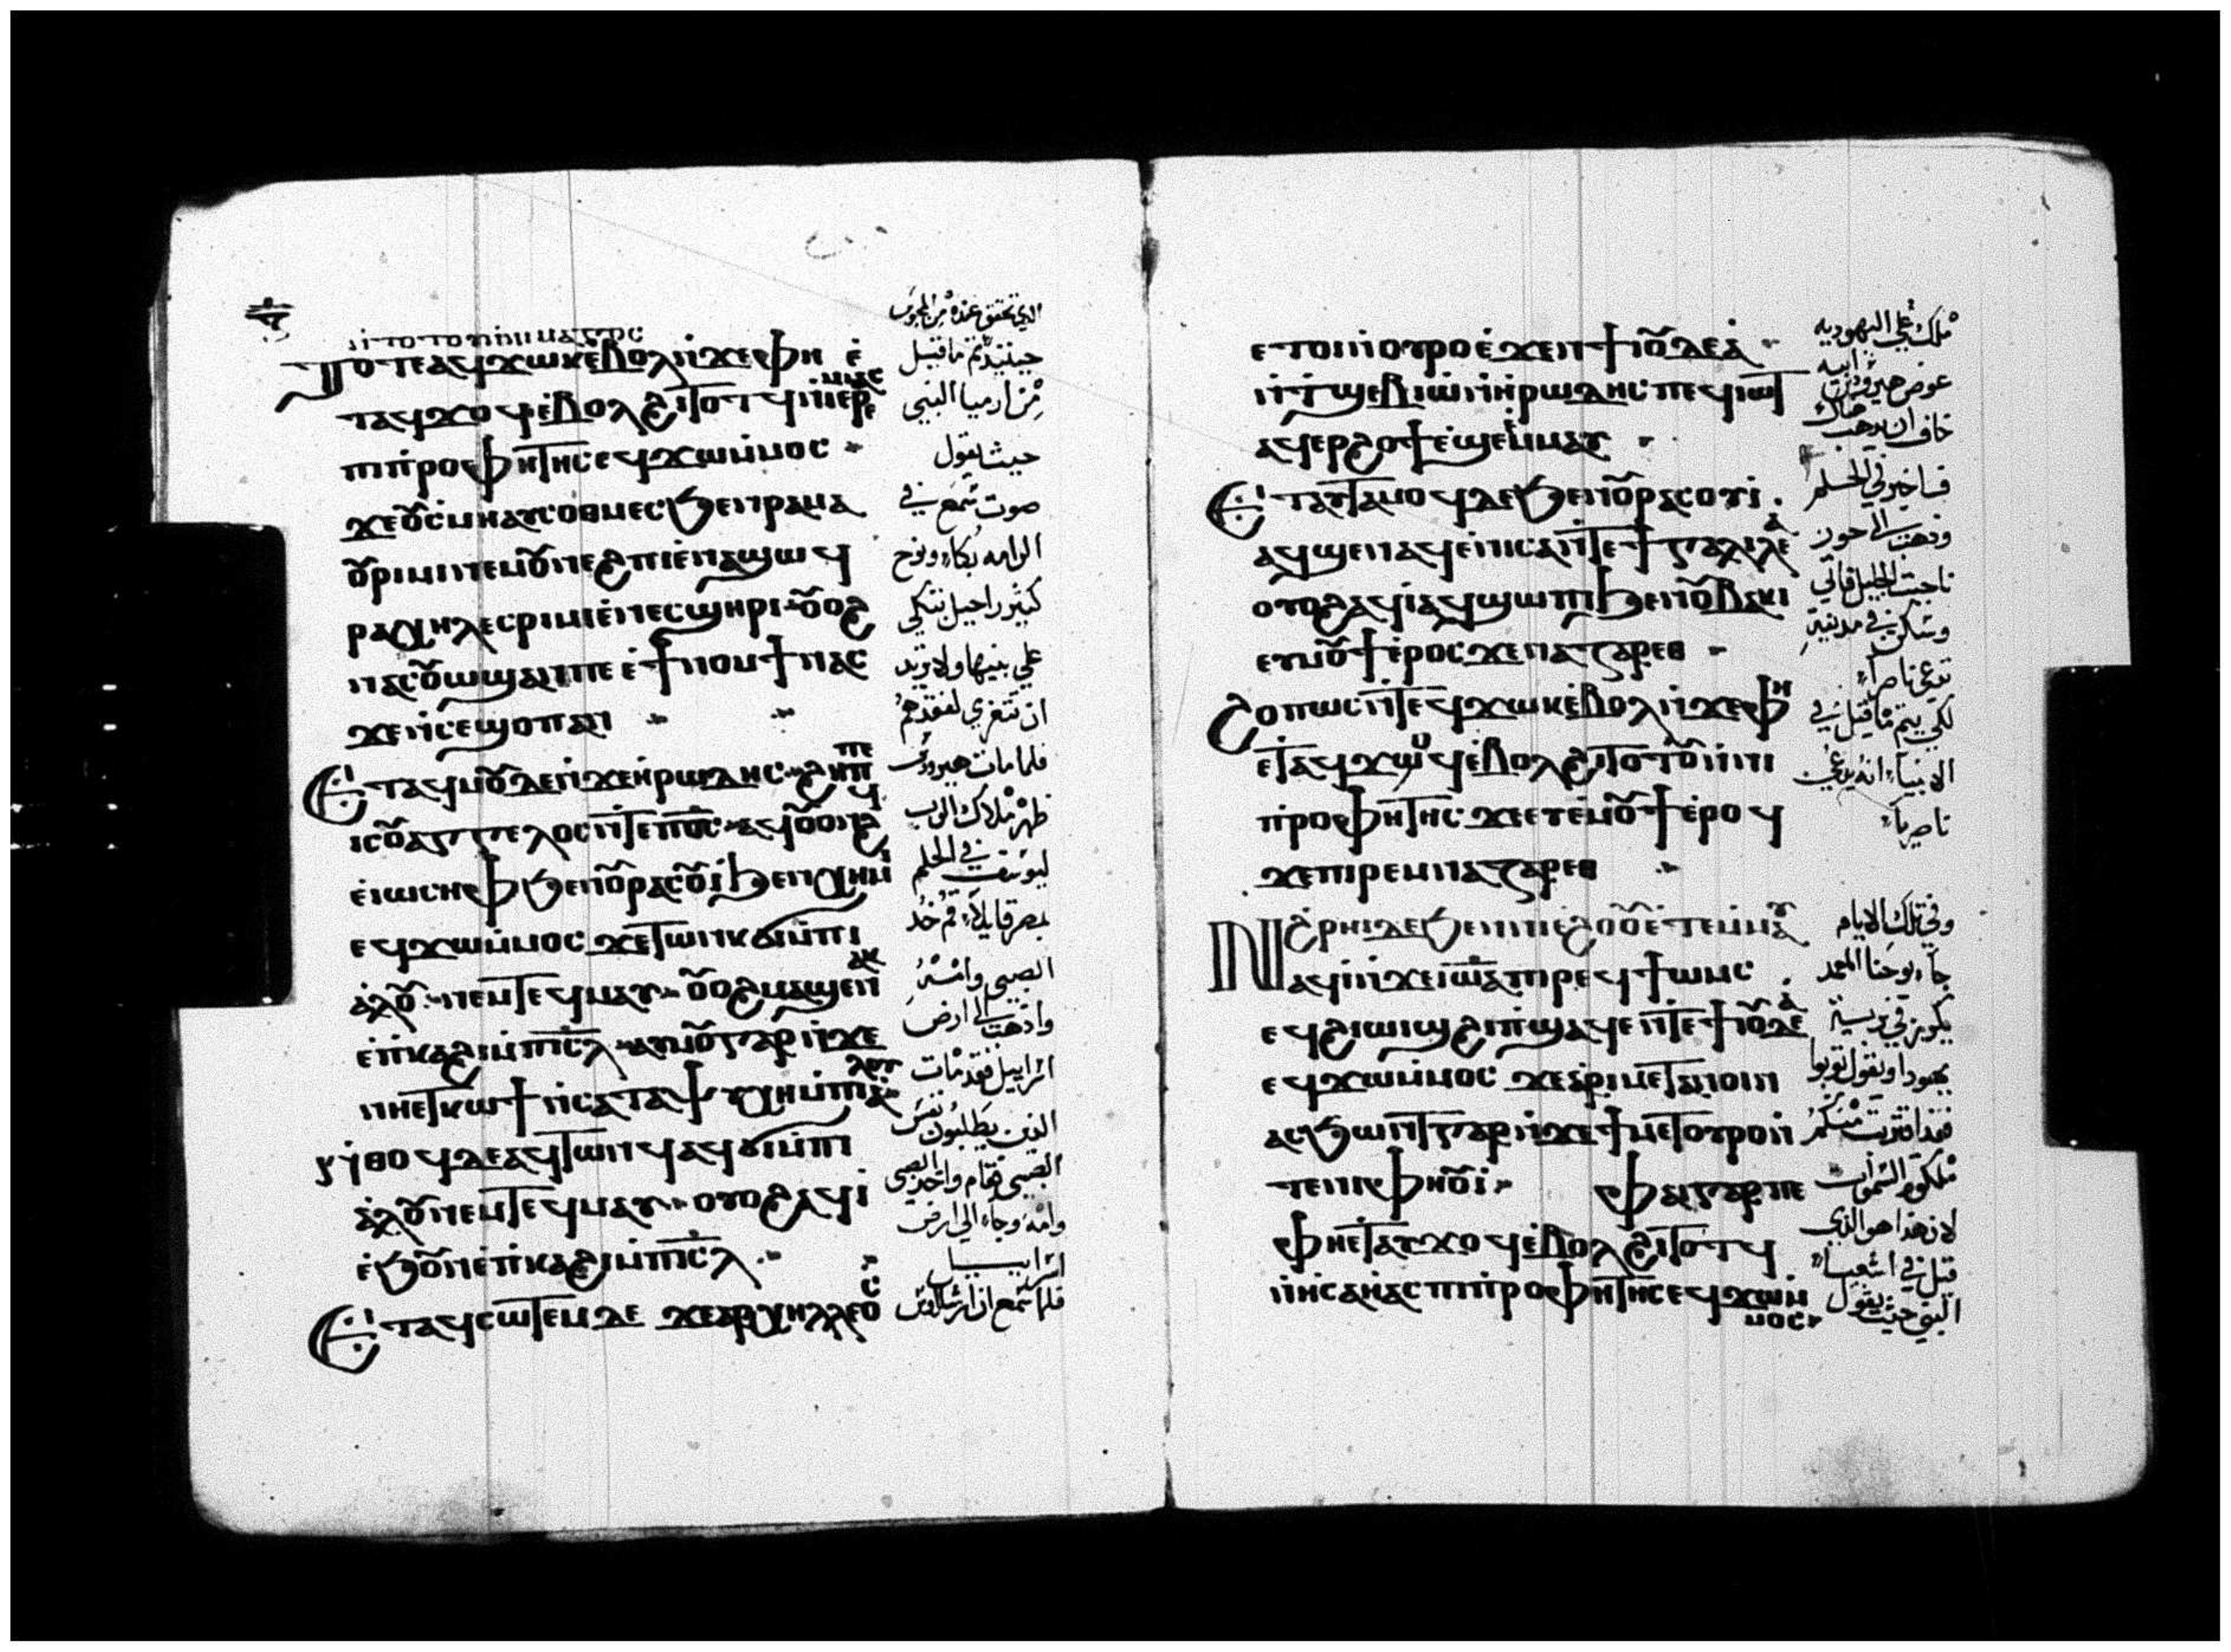 ⲛ̀ⲧⲟⲧⲟⲩⲛ̀ⲛⲓⲙⲁⲅⲟⲥ
ⲧⲟⲧⲉ ⲁϥϫⲱⲕ ⲉ̀ⲃⲟⲗ ⲛ̀ϫⲉ ⲫⲏ ⲉ̀
ⲧⲁϥϫⲟϥ ⲉ̀ⲃⲟⲗ ϩⲓⲧⲟⲧϥ ⲛ̀ⲓⲉⲣⲉⲙⲓⲁⲥ
ⲡⲓⲡ̀ⲣⲟⲫⲏⲧⲏⲥ ⲉϥϫⲱ ⲙ̀ⲙⲟⲥ
ϫⲉ ⲟⲩⲥ̀ⲙⲏ ⲁⲩⲥⲟⲑⲙⲉⲥ ϧⲉⲛ ⲣⲁⲙⲁ
ⲟⲩⲣⲓⲙⲓ ⲛⲉⲙ ⲟⲩⲛⲉϩⲡⲓ ⲉ̀ⲛⲁϣⲱϥ
ⲣⲁⲭⲏⲗ ⲉⲥⲣⲓⲙⲓ ⲉ̀ⲛⲉⲥϣⲏⲣⲓ ⲟⲩⲟϩ
ⲛⲁⲥⲟⲩⲱϣ ⲁⲛ ⲡⲉ ⲉ̀ϯⲛⲟⲙϯ ⲛⲁⲥ
ϫⲉ ⲛ̀ⲥⲉϣⲟⲡ ⲁⲛ
ⲉ̀ⲧⲁϥⲙⲟⲩ ⲇⲉ ⲛ̀ϫⲉ ⲏⲣⲱⲇⲏⲥ ϩⲏⲡⲡⲉ
ⲓⲥ ⲟⲩⲁⲅⲅⲉⲗⲟⲥ ⲛ̀ⲧⲉ ⲡⲟ̅ⲥ̅ ⲁϥⲟⲩⲟⲛϩϥ
ⲉ̀ⲓⲱⲥⲏⲫ ϧⲉⲛ ⲟⲩⲣⲁⲥⲟⲩⲓ̀ ϧⲉⲛ ⲭⲏⲙⲓ
ⲉϥϫⲱ ⲙ̀ⲙⲟⲥ ϫⲉ ⲧⲱⲛⲕ ϭⲓ ⲙ̀ⲡⲓ
ⲁ̀ⲗⲟⲩ ⲛⲉⲙ ⲧⲉϥⲙⲁⲩ ⲟⲩⲟϩ ⲙⲁϣⲉⲛⲁⲕ
ⲉ̀ⲡ̀ⲕⲁϩⲓ ⲙ̀ⲡⲓ̅ⲥ̅ⲗ̅ ⲁⲩⲙⲟⲩ ⲅⲁⲣ ⲛ̀ϫⲉ
ⲛⲏⲉⲧⲕⲱϯ ⲛ̀ⲥⲁ ⲧⲁⲯⲩⲭⲏ ⲙ̀ⲡⲓⲁ̀ⲗⲟⲩ
ⲛ̀ⲑⲟϥ ⲇⲉ ⲁϥⲧⲱⲛϥ ⲁϥϭⲓ ⲙ̀ⲡⲓ
ⲁ̀ⲗⲟⲩ ⲛⲉⲙ ⲧⲉϥⲙⲁⲩ ⲟⲩⲟϩ ⲁϥⲓ̀
ⲉ̀ϧⲟⲩⲛ ⲉ̀ⲡ̀ⲕⲁϩⲓ ⲙ̀ⲡⲓ̅ⲥ̅ⲗ̅
ⲉ̀ⲧⲁϥⲥⲱⲧⲉⲙ ⲇⲉ ϫⲉ ⲁⲣⲭⲏⲗⲗⲉⲟⲥ
الذي تحقق عنده من المجوس
حينيذ تم ما قيل
من ارميا النبي
حيث يقول
صوت سمع في
الرامه بكاء ونوح
كثير راحيل تبكي
علي بنيها ولا تريد
ان تتعزي لفقدهم
فلما مات هيرودس
ظهر ملاك الرب
ليوسف في الحلم
بمصر قايلا قم خذ
الصبي وامه
واذهب الي ارض
اسراييل فقد مات
الذين يطلبون نفس
الصبي فقام واخذ الصبي
وامه وجاء الي ارض
اسراييل
فلما سمع ان ارشلاوس
ⲉⲧⲟⲓ ⲛ̀ⲟⲩⲣⲟ ⲉ̀ϫⲉⲛ ϯⲓⲟⲩⲇⲉⲁ̀
ⲛ̀ⲧϣⲉⲃⲓⲱ̀ ⲛ̀ⲏⲣⲱⲇⲏⲥ ⲡⲉϥⲓⲱⲧ
ⲁϥⲉⲣϩⲟϯ ⲉ̀ϣⲉ ⲉ̀ⲙⲁⲩ
ⲉ̀ⲧⲁⲩⲧⲁⲙⲟϥ ⲇⲉ ϧⲉⲛ ⲟⲩⲣⲁⲥⲟⲩⲓ
ⲁϥϣⲉⲛⲁϥ ⲉ̀ⲛⲓⲥⲁ ⲛ̀ⲧⲉ ϯⲅⲁⲗⲓⲗⲉⲁ̀
ⲟⲩⲟϩ ⲁϥⲓ̀ ⲁϥϣⲱⲡⲓ ϧⲉⲛ ⲟⲩⲃⲁⲕⲓ
ⲉⲩⲙⲟⲩϯ ⲉ̀ⲣⲟⲥ ϫⲉ ⲛⲁⲍⲁⲣⲉⲑ
ϩⲟⲡⲱⲥ ⲛ̀ⲧⲉϥϫⲱⲕ ⲉ̀ⲃⲟⲗ ⲛ̀ϫⲉ ⲫⲏ
ⲉⲧⲁϥϫⲟϥ ⲉ̀ⲃⲟⲗ ϩⲓⲧⲟⲧⲟⲩ ⲛ̀ⲛⲓ
ⲡ̀ⲣⲟⲫⲏⲧⲏⲥ ϫⲉ ⲉⲩⲉ̀ⲙⲟⲩϯ ⲉ̀ⲣⲟϥ
ϫⲉ ⲡⲓⲣⲉⲙⲛⲁⲍⲁⲣⲉⲑ
ⲛ̀ϩ̀ⲣⲏⲓ ⲇⲉ ϧⲉⲛ ⲛⲓⲉ̀ϩⲟⲟⲩ ⲉ̀ⲧⲉⲙ̀ⲙⲁⲩ
ⲁϥⲓ̀ ⲛ̀ϫⲉ ⲓⲱ̅ⲁ̅ ⲡⲓⲣⲉϥϯⲱⲙⲥ
ⲉϥϩⲓⲱⲓϣ ϩⲓ ⲡ̀ϣⲁϥⲉ ⲛ̀ⲧⲉ ϯⲓⲟⲩⲇⲉⲁ̀
ⲉϥϫⲱ ⲙ̀ⲙⲟⲥ ϫⲉ ⲁ̀ⲣⲓⲙⲉⲧⲁⲛⲟⲓⲛ
ⲁⲥϧⲱⲛⲧ ⲅⲁⲣ ⲛ̀ϫⲉ ϯⲙⲉⲧⲟⲩⲣⲟ ⲛ̀
ⲧⲉ ⲛⲓⲫⲏⲟⲩⲓ̀ ⲫⲁⲓ ⲅⲁⲣ ⲡⲉ
ⲫⲏⲉⲧⲁⲩϫⲟϥ ⲉ̀ⲃⲟⲗ ϩⲓⲧⲟⲧϥ
ⲛ̀ⲏⲥⲁⲏⲁⲥ ⲡⲓⲡ̀ⲣⲟⲫⲏⲧⲏⲥ ⲉϥϫⲱ ⲙ̀ⲙⲟⲥ
ملك علي اليهوديه
عوض هيرودس ابيه
خاف ان يذهب هناك
فاخبر في الحلم
وذهب الي حوز
ناحيت الجليل فاتي
وسكن في مدينة
تدعي ناصرة
لكي يتم ما قيل في
الانبياء انه يدعي
ناصريا
وفي تلك الايام
جاء يوحنا المعمد
يكرز في برية
يهودا ويقول توبوا
فقد اقتربت منكم
ملكوت السموات
لان هذا هو الذي
قيل في اشعياء
النبي حيث يقول